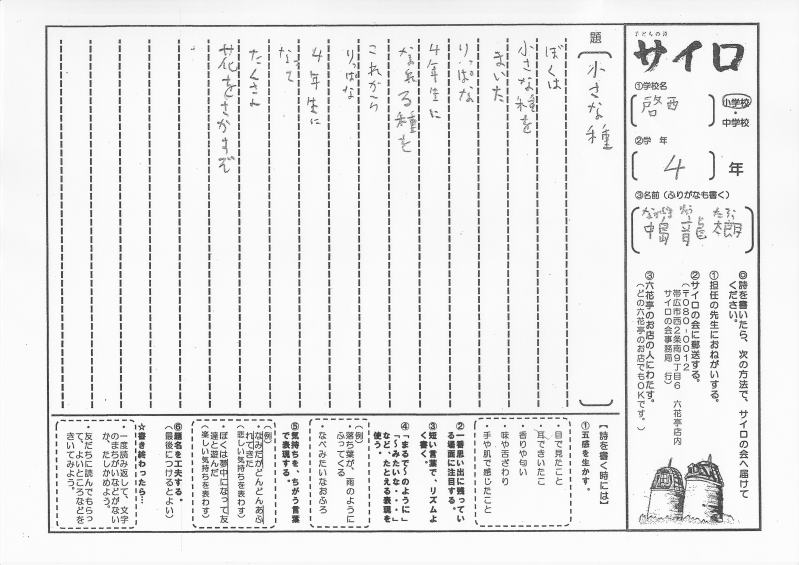 子どもの詩
サイロ
①学校名
啓西
小学校
・
中学校
②学 年
4
年
③名前（ふりがなも書く）
◎詩を書いたら、次の方法で、サイロの会へ届けて
ください。
①担任の先生におねがいする。
②サイロの会に郵送する。
（〒080-0012
帯広市西2条南9丁目6 六花亭店内
サイロの会事務局 行）
③六花亭のお店の人にわたす。
（どの六花亭のお店でもOKです。）
題
小さな種
ぼくは
小さな種を
まいた
りっぱな
4年生に
なれる種を
これから
りっぱな
4年生に
なって
たくさん
花をさかすぞ
【詩を書く時には】
①五感を生かす。
・目で見たこと
・耳できいたこ
と
・香りや匂い
・味や舌ざわり
・手や肌で感じたこと
②一番思い出に残ってい
る場面に注目する。
③短い言葉で、リズムよ
く書く。
④「まるで〜のように」
「〜みたいな・・」
など、たとえる表現を
使う。
（例）
落ち葉が、雨のように
ふってくる
なべみたいなおふろ
⑤気持ちを、ちがう言葉
で表現する。
（例）
なみだがどんどんあふ
れてきた
（悲しい気持ちを表わす）
ぼくは夢中になって友
達と遊んだ
（楽しい気持ちを表わす）
⑥題名を工夫する。
（最後につけるとよい）
☆書き終わったら…
・一度読み返して、文字
のまちがいなどがない
か、たしかめよう。
・友だちに読んでもらっ
て、よいところなどを
きいてみよう。